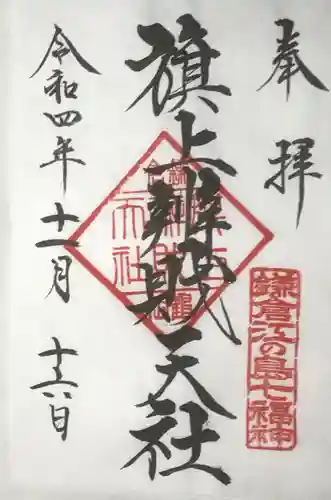 奉拝
旗上辨財天社
令和四年十一月十六日
鎌倉江の島七福神